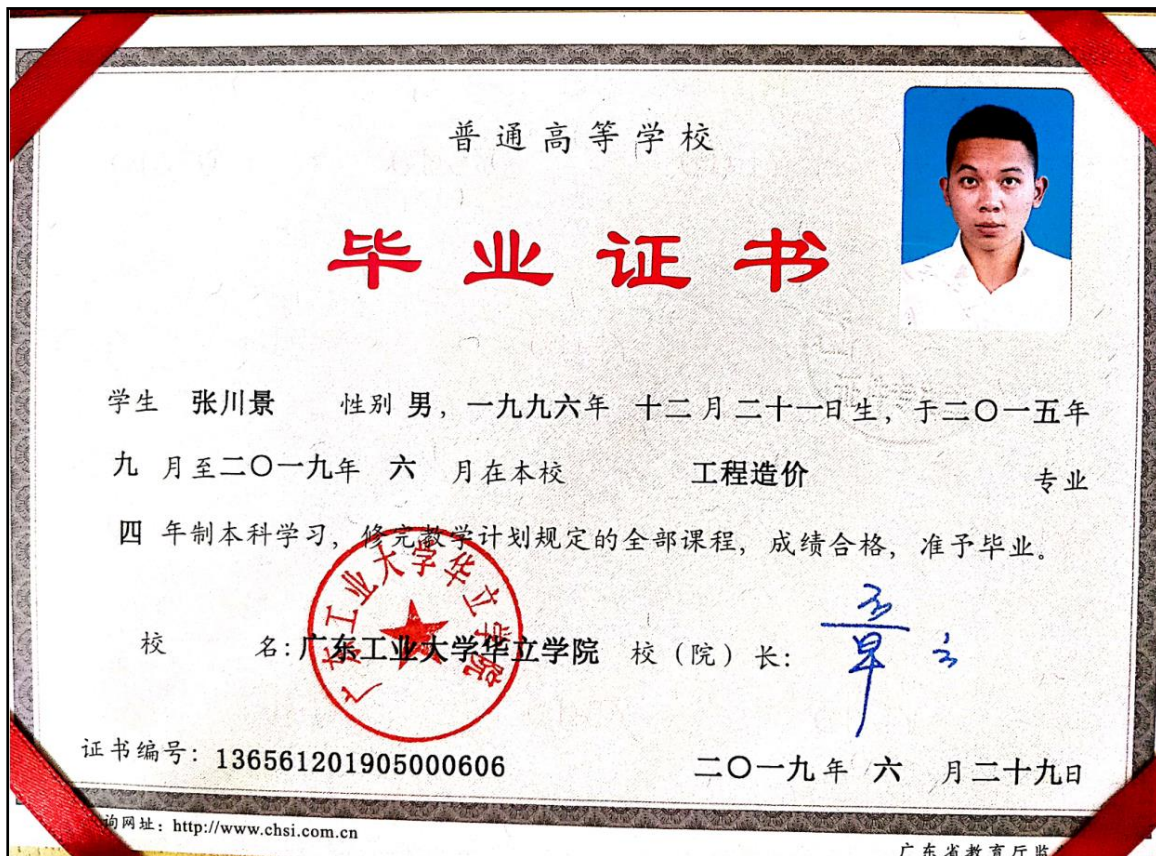 普通高等学校
毕业证书
学生 张川景 性别 男，一九九六年 十二月二十一日生，于二〇一五年
九 月至二〇一九年 六 月在本校 工程造价 专业
四 年制本科学习，修完教学计划规定的全部课程，成绩合格，准予毕业。
广东工业大学华立学院
校 名：广东工业大学华立学院 校（院）长：
证书编号：136561201905000606 二〇一九年 六 月二十九日
询网址：http://www.chsi.com.cn
广东省教育厅监